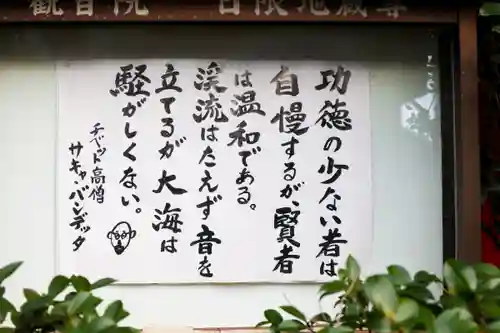 観音院　日限地蔵尊
功徳の少ない者は
自慢するが、賢者
は温和である。
渓流はたえず音を
立てるが大海は
騒がしくない。
チベット高僧
サキャ・パンデッタ